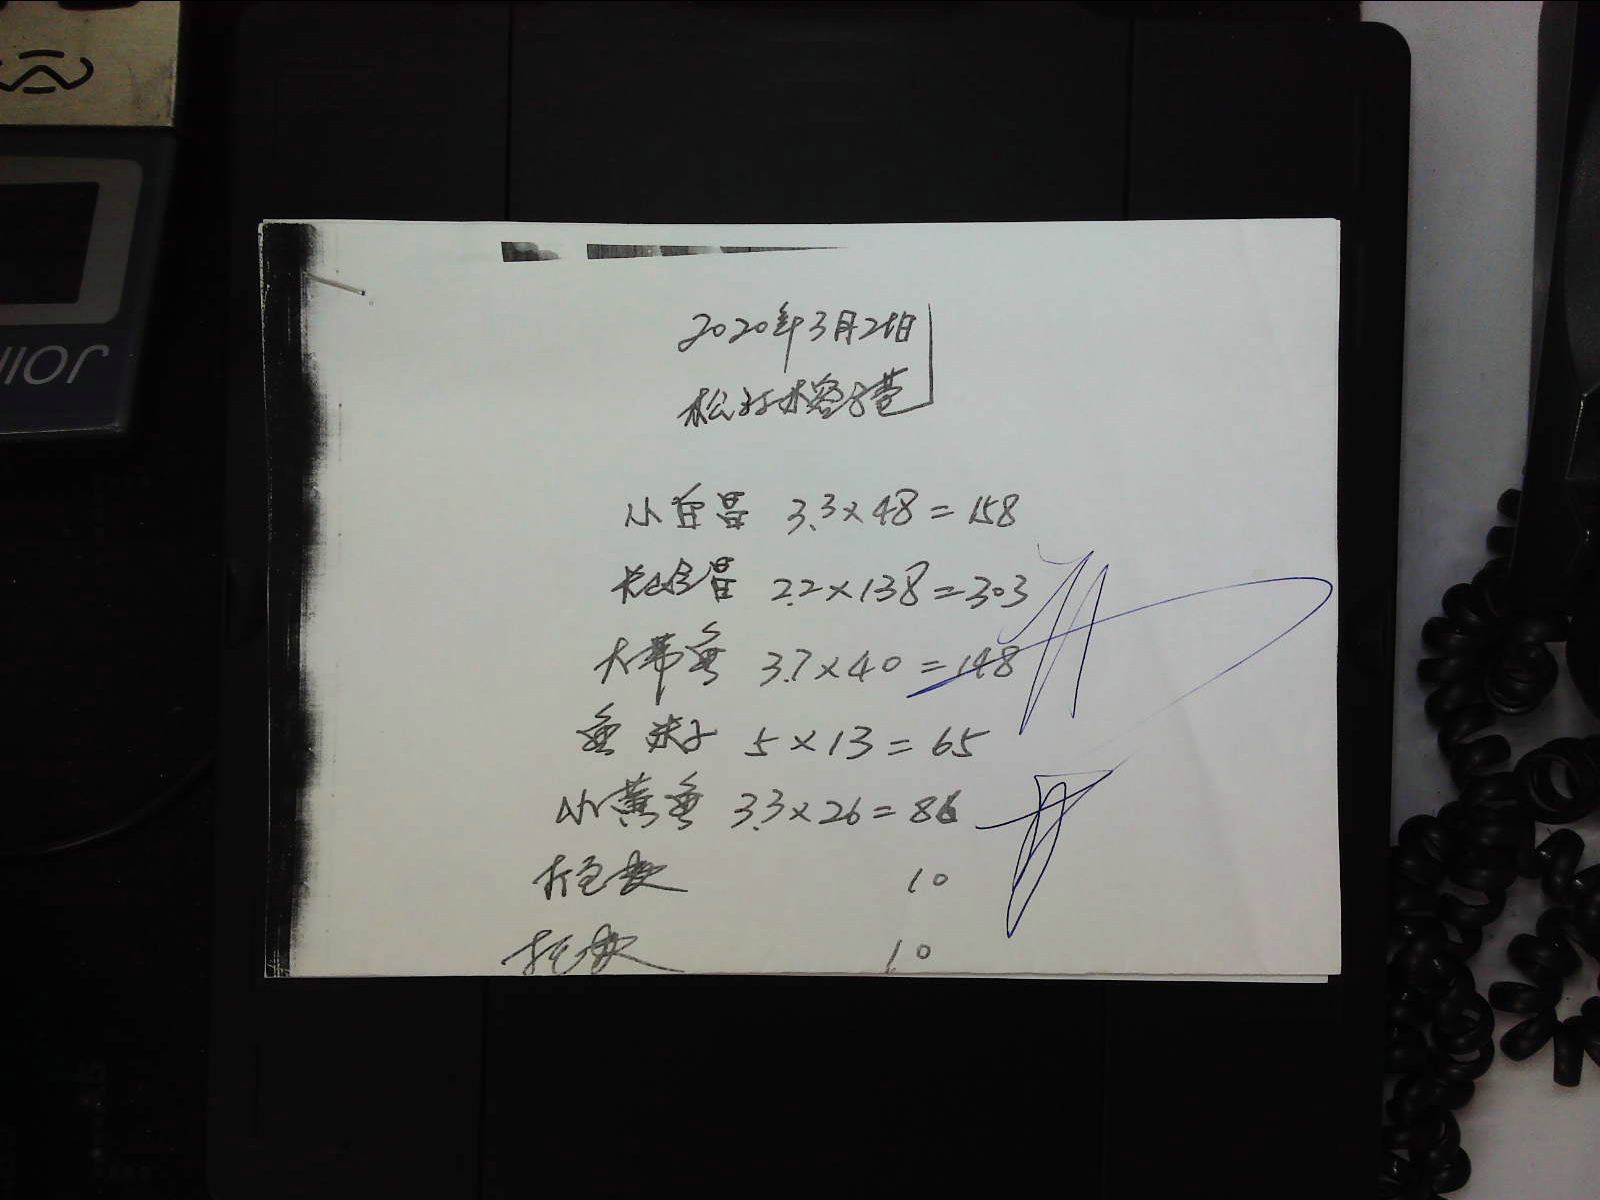 2020年3月21日
小白昌 3.3×48=158
昌 2.2×138=303
大带鱼 3.7×40=148
鱼 5×13=65
小黄鱼 3.3×26=86
打包费 10
打包费 10